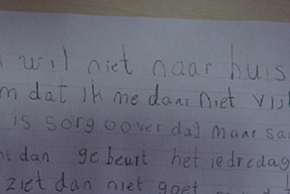 wil niet naar huis
dat ik me dan niet
is sorg oover dag maar
dan gebeurt het iedredag
ziet dan niet goet